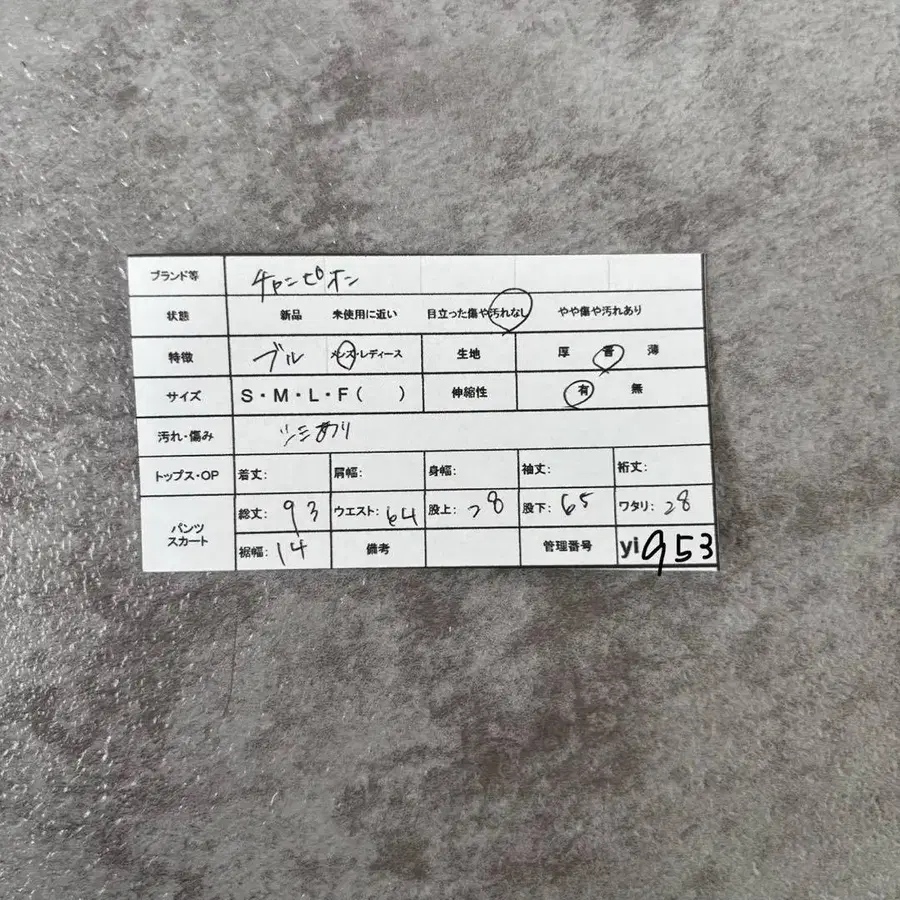 ブランド等 チャンピオン
状態 新品 未使用に近い 目立った傷や汚れなし やや傷や汚れあり
特徴 ブル メンズ・レディース 生地 厚 普 薄
サイズ S・M・L・F( ) 伸縮性 有 無
汚れ・傷み シミあり
トップス・OP 着丈: 肩幅: 身幅: 袖丈: 裄丈:
パンツ スカート 総丈: 93 ウエスト: 64 股上: 28 股下: 65 ワタリ: 28
裾幅: 14 備考 管理番号 yi953